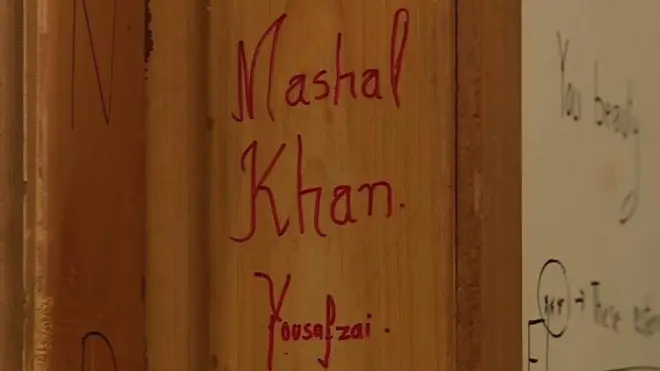 N
Mashal
Khan.
Yousafzai.
D
You beauty
These